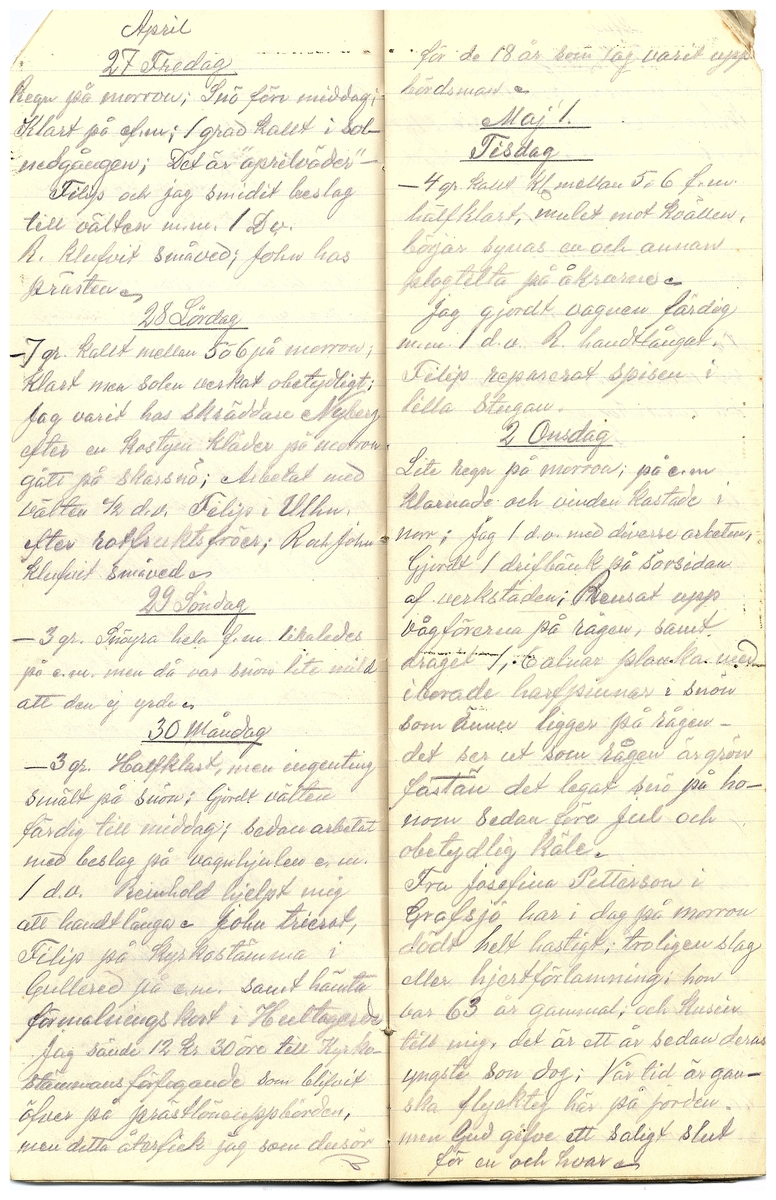 April
27 Fredag
Regn på morron; Snö före middag;
Klart på e.m; 1 grad kallt i sol-
nedgången; Det är "aprilväder" —
Filip och jag smidit beslag
till välten m.m. 1 D.v.
R. klufvit småved; John hos
prästen
28 Lördag
—7 gr. kallt mellan 5 ó 6 på morron;
Klart men solen verkat obetydligt;
Jag varit hos skräddare Nyberg
efter en kostym kläder på morron
gått på skarsnö; Arbetat med
välten ½ d.v. Filip i Ulhn.
efter rotfruktsfröer; R och John
klufvit småved
29 Söndag
—3 gr. Snöyra hela f.m. likaledes
på e.m. men då var snön lite mild
att den ej yrde
30 Måndag
—3 gr. Halfklart, men ingenting
smält på snön; Gjordt välten
färdig till middag; sedan arbetat
med beslag på vagnhjulen e.m.
1 d.v. Reinhold hjelpt mig
att handtlånga John tricrot,
Filip på Kyrkostämma i
Gullered på e.m. samt hämta
förmalningskort i
Jag sände 12 Kr 30 öre till Kyrko-
stämmans förfogande som blifvit
öfver på prästlöneuppbörden,
men detta återfick jag som dusör
för de 18 år som jag varit upp-
bördsman
Maj 1.
Tisdag
—4 gr. kallt kl mellan 5 ó 6 f.m.
halfklart, mulet mot kvällen,
börjar synas en och annan
plogtelta på åkrarne
Jag gjordt vagnen färdig
m.m. 1 d.v. R. handtlångat.
Filip reparerat spisen i
lilla stugan.
2 Onsdag
Lite regn på morron; på e.m
klarnade och vinden kastade i
norr; Jag 1 d.v. med diverse arbeten,
Gjordt 1 drifbänk på sörsidan
af verkstaden; Rensat upp
vågförerna på ragen, samt
draget 7, 6 alnar planka med
iborade harfpinnar i snön
som ännu ligger på rågen —
det ser ut som rågen är grön
fastän det legat snö på ho-
nom sedan före Jul och
obetydlig käle.
Fru Josefina Petterson i
Grafsjö har i dag på morron
dödt helt hastigt; troligen slag
eller hjertförlamning; hon
var 63 år gammal; och kusin
till mig. det är ett år sedan deras
yngste son dog; Vår tid är gan-
ska flyktig här på jorden.
men Gud gifve ett saligt slut
för en och hvar